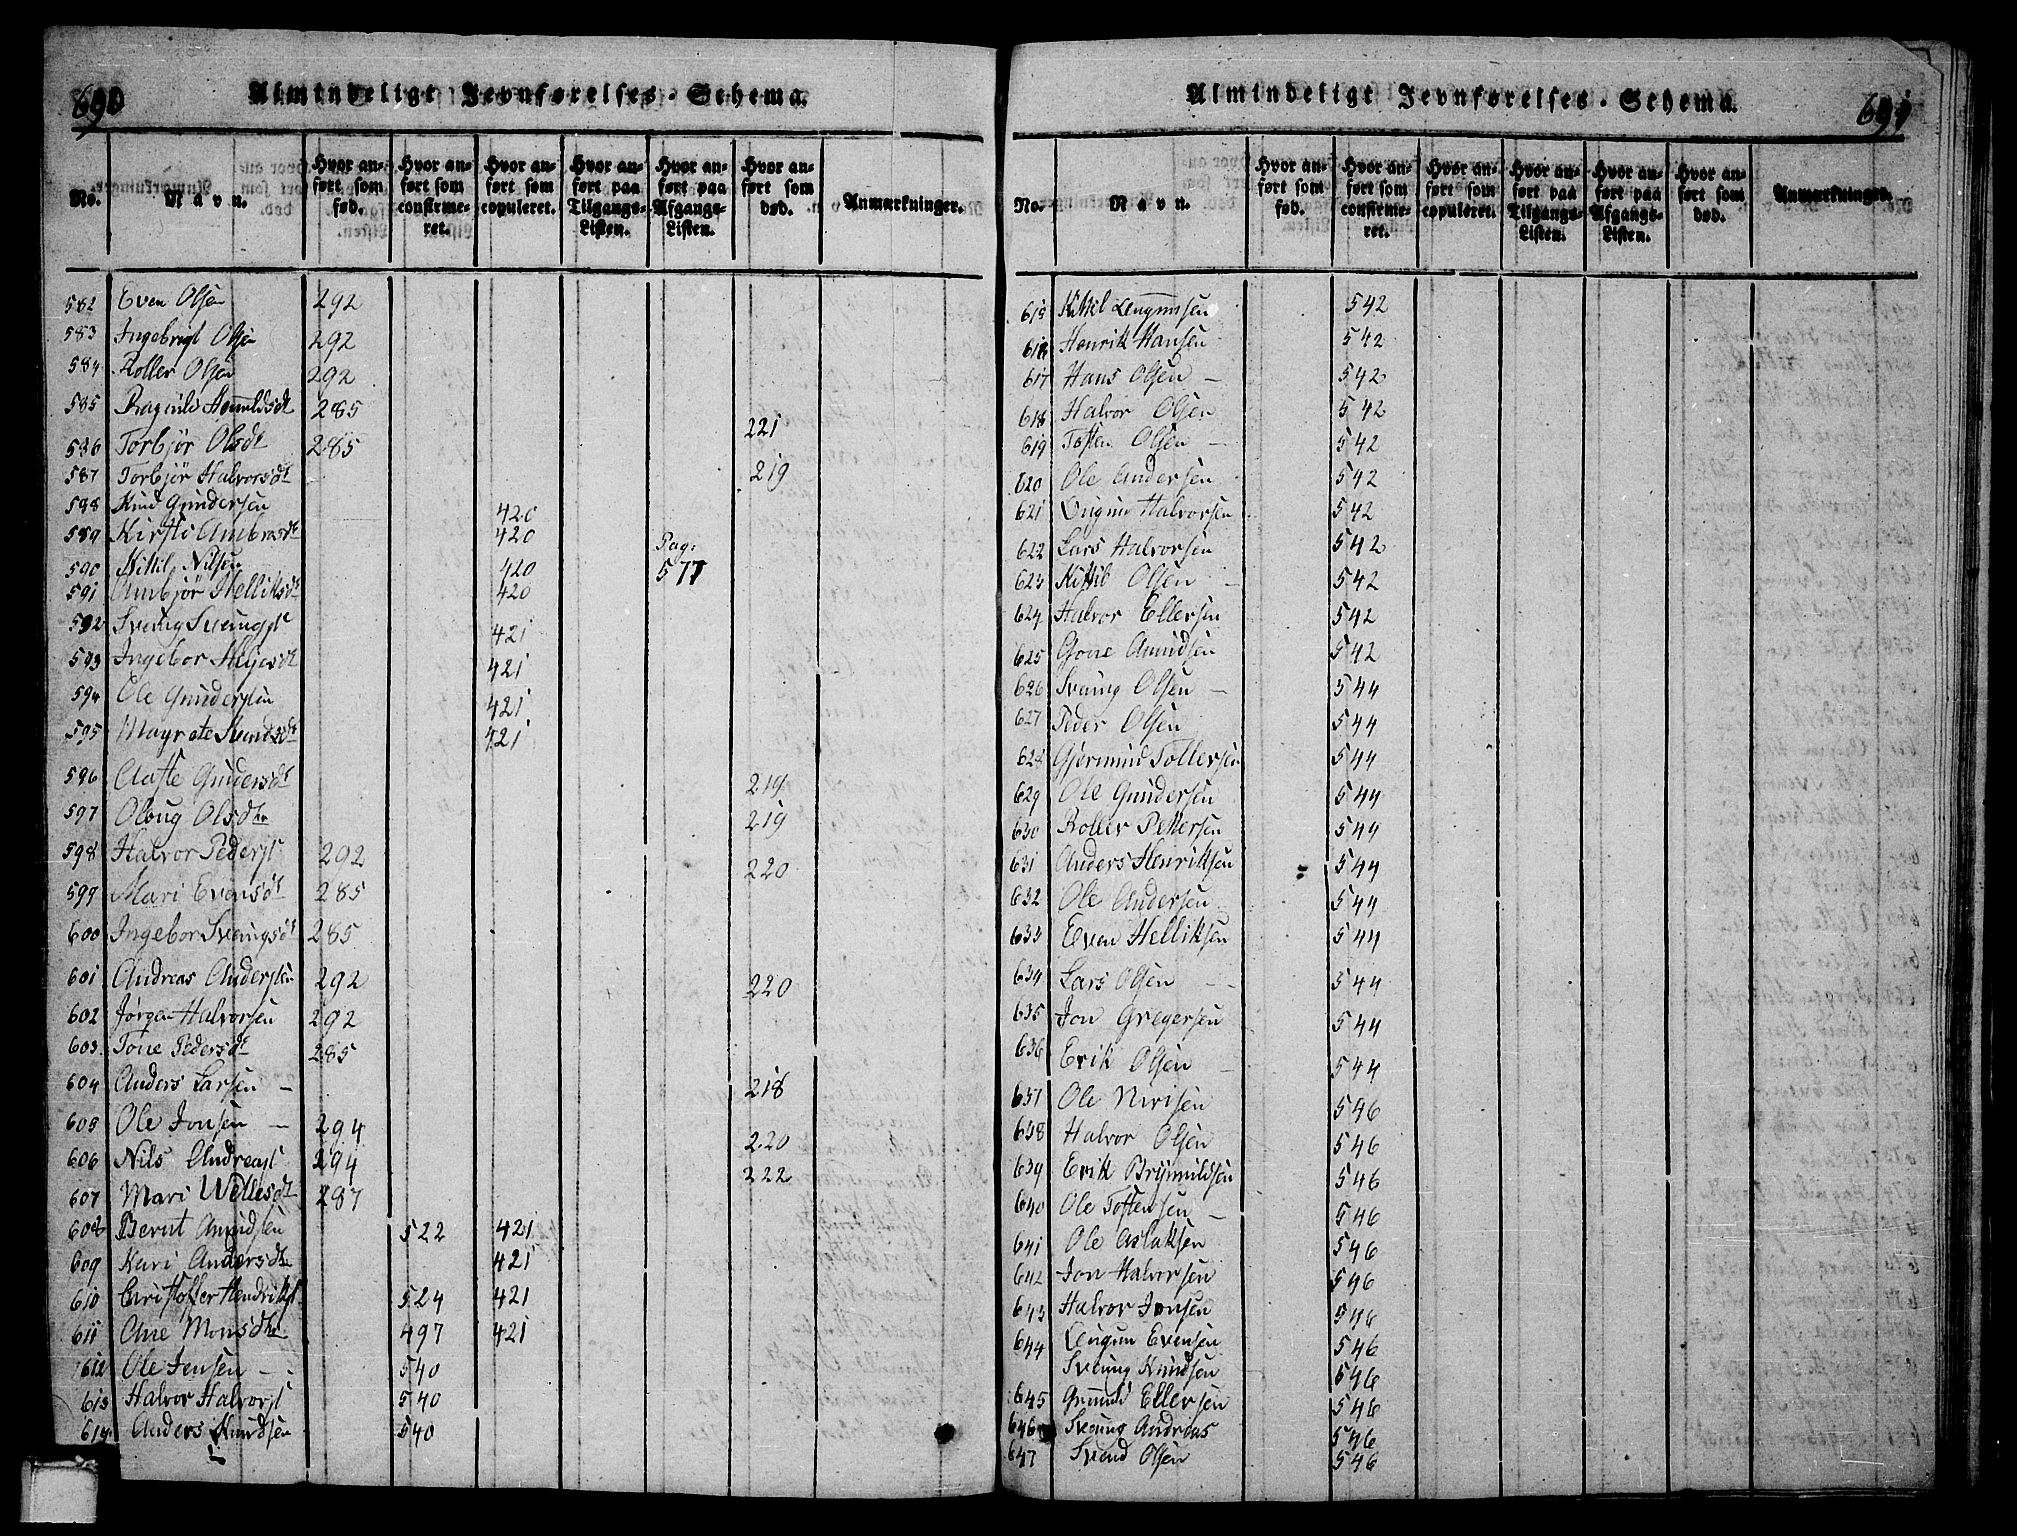 690
Almindeligt Jevnførelses-Schema.
No. Navn. Hvor anført som fød. Hvor anført som confirmeret. Hvor anført som copuleret. Hvor anført paa Tilgangs-Listen. Hvor anført paa Afgangs-Listen. Hvor anført som død. Anmærkninger.
582 Even Olsen 292
583 Ingebrigt Olsen 292
584 Roller Olsen 292
585 285
586 Torbjør Olsdt 285 221
587 Torbjør Halvorsdt 219
588 Knud Gundersen 420
589 Kirsti Ambrosdt 420
590 Kittil Nilsen 420 Pag: 577
591 Ambjør Helliksdt 420
592 Sveinung Sveinungst 421
593 Ingebor Helgesdt 421
594 Ole Gundersen 421
595 Magrete Svendsdt 421
596 Aaste Gundersdt 219
597 Olaug Olsdtr 219
598 Halvor Pederst 292 220
599 Mari Evensdt 285
600 Ingebor Sveungsdt 285
601 Andreas Andersen 292 220
602 Jørgen Halvorsen 292
603 Tone Pedersdt 285
604 Anders Larsen – 218
605 Ole Jonsen – 294
606 Nils Andreast 294 220
607 Mari Wellesdt 287 222
608 Bernt Amundsen 522 421
609 Kari Andersdtr 421
610 Christoffer Hendrikst 524 421
611 Ane Monsdtr 497 421
612 Ole Jensen – 540
613 Halvor Halvorst 540
614 Anders Knudsen 540
691
Almindeligt Jevnførelses-Schema.
No. Navn. Hvor anført som fød. Hvor anført som confirmeret. Hvor anført som copuleret. Hvor anført paa Tilgangs-Listen. Hvor anført paa Afgangs-Listen. Hvor anført som død. Anmærkninger.
615 Kittel 542
616 Henrik Hansen 542
617 Hans Olsen – 542
618 Halvor Olsen 542
619 Tosten Olsen – 542
620 Ole Andersen 542
621 Halvorsen 542
622 Lars Halvorsen 542
623 Kittil Olsen – 542
624 Halvor Ellersen 542
625 Amundsen 542
626 Sveinung Olsen – 544
627 Peder Olsen 544
628 Gjermund Tollersen 544
629 Ole Gundersen 544
630 Roller Pettersen 544
631 Anders Henriksen 544
632 Ole Andersen 544
633 Even Helliksen 544
634 Lars Olsen – 544
635 Jon Gregersen 544
636 Erik Olsen – 544
637 Ole Nirisen 546
638 Halvor Olsen 546
639 Erik Brynnildsen 546
640 Ole Tostensen – 546
641 Ole Aslaksen 546
642 Jon Halvorsen 546
643 Halvor Jonsen 546
644 Evensen 546
Sveinung Knudsen 546
645 Ellersen 546
646 Sveinung Andreas 546
647 Svend Olsen 546